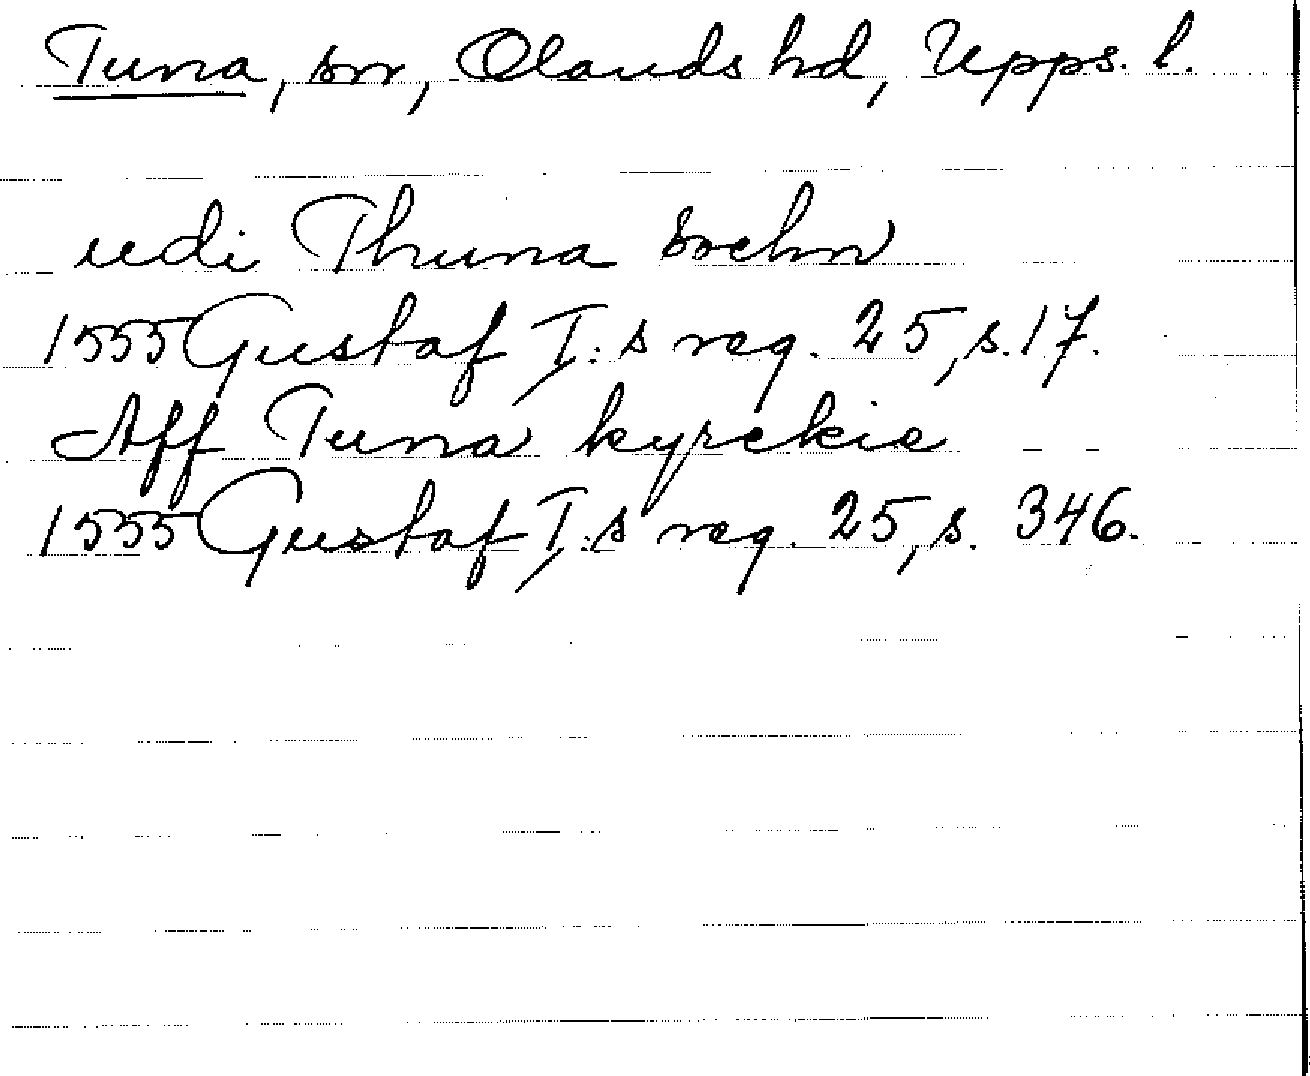 Tuna, sn, Olands hd, Upps. l.
udi Thuna sochn
1555 Gustaf I:s reg. 25, s. 17.
Aff Tuna kyrckie
1555 Gustaf I:s reg. 25, s. 346.